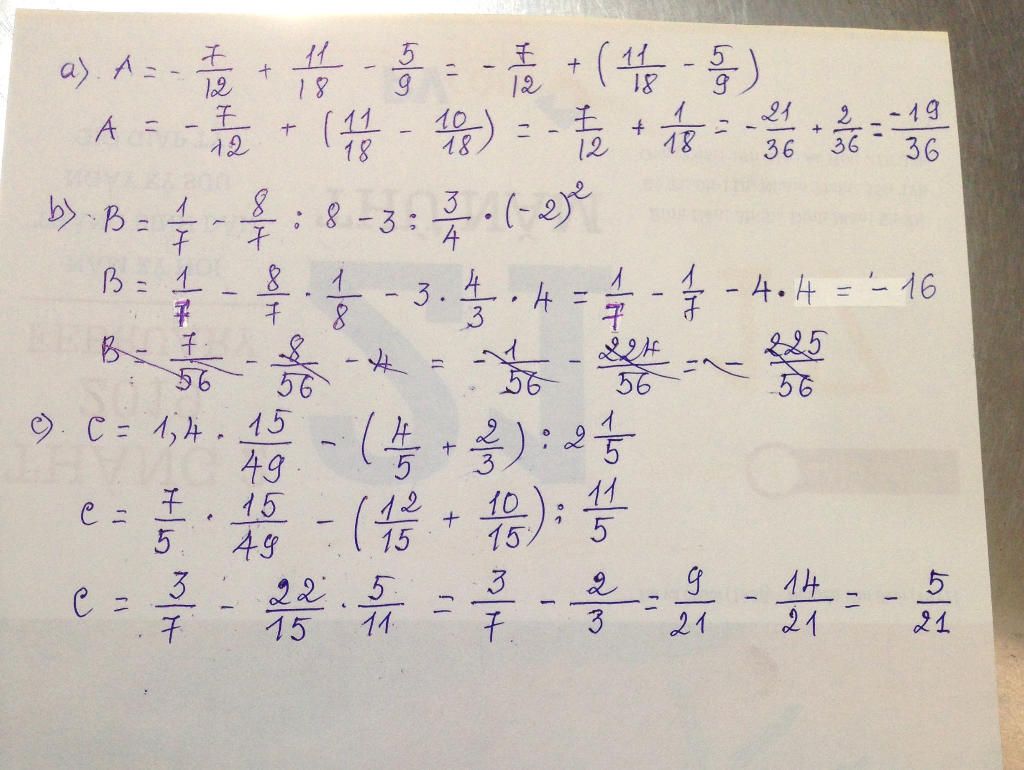 a) A = - 7/12 + 11/18 - 5/9 = - 7/12 + (11/18 - 5/9)
A = - 7/12 + (11/18 - 10/18) = - 7/12 + 1/18 = - 21/36 + 2/36 = -19/36
b) B = 1/7 - 8/7 : 8 - 3 : 3/4 . (-2)²
B = 1/7 - 8/7 . 1/8 - 3 . 4/3 . 4 = 1/7 - 1/7 - 4 . 4 = - 16
B = 7/56 - 8/56 - 4 = - 1/56 - 224/56 = - 225/56
c) C = 1,4 . 15/49 - (4/5 + 2/3) : 2 1/5
C = 7/5 . 15/49 - (12/15 + 10/15) : 11/5
C = 3/7 - 22/15 . 5/11 = 3/7 - 2/3 = 9/21 - 14/21 = - 5/21